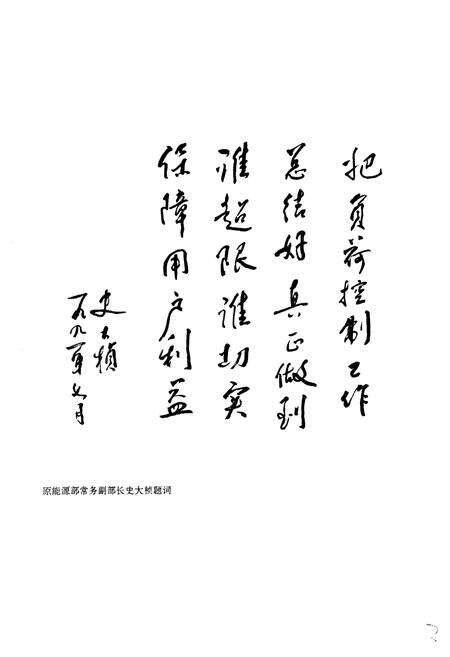 把负荷控制工作
总结好真正做到
谁超限谁切实
保障用户利益
史大桢
一九九一年七月
原能源部常务副部长史大桢题词